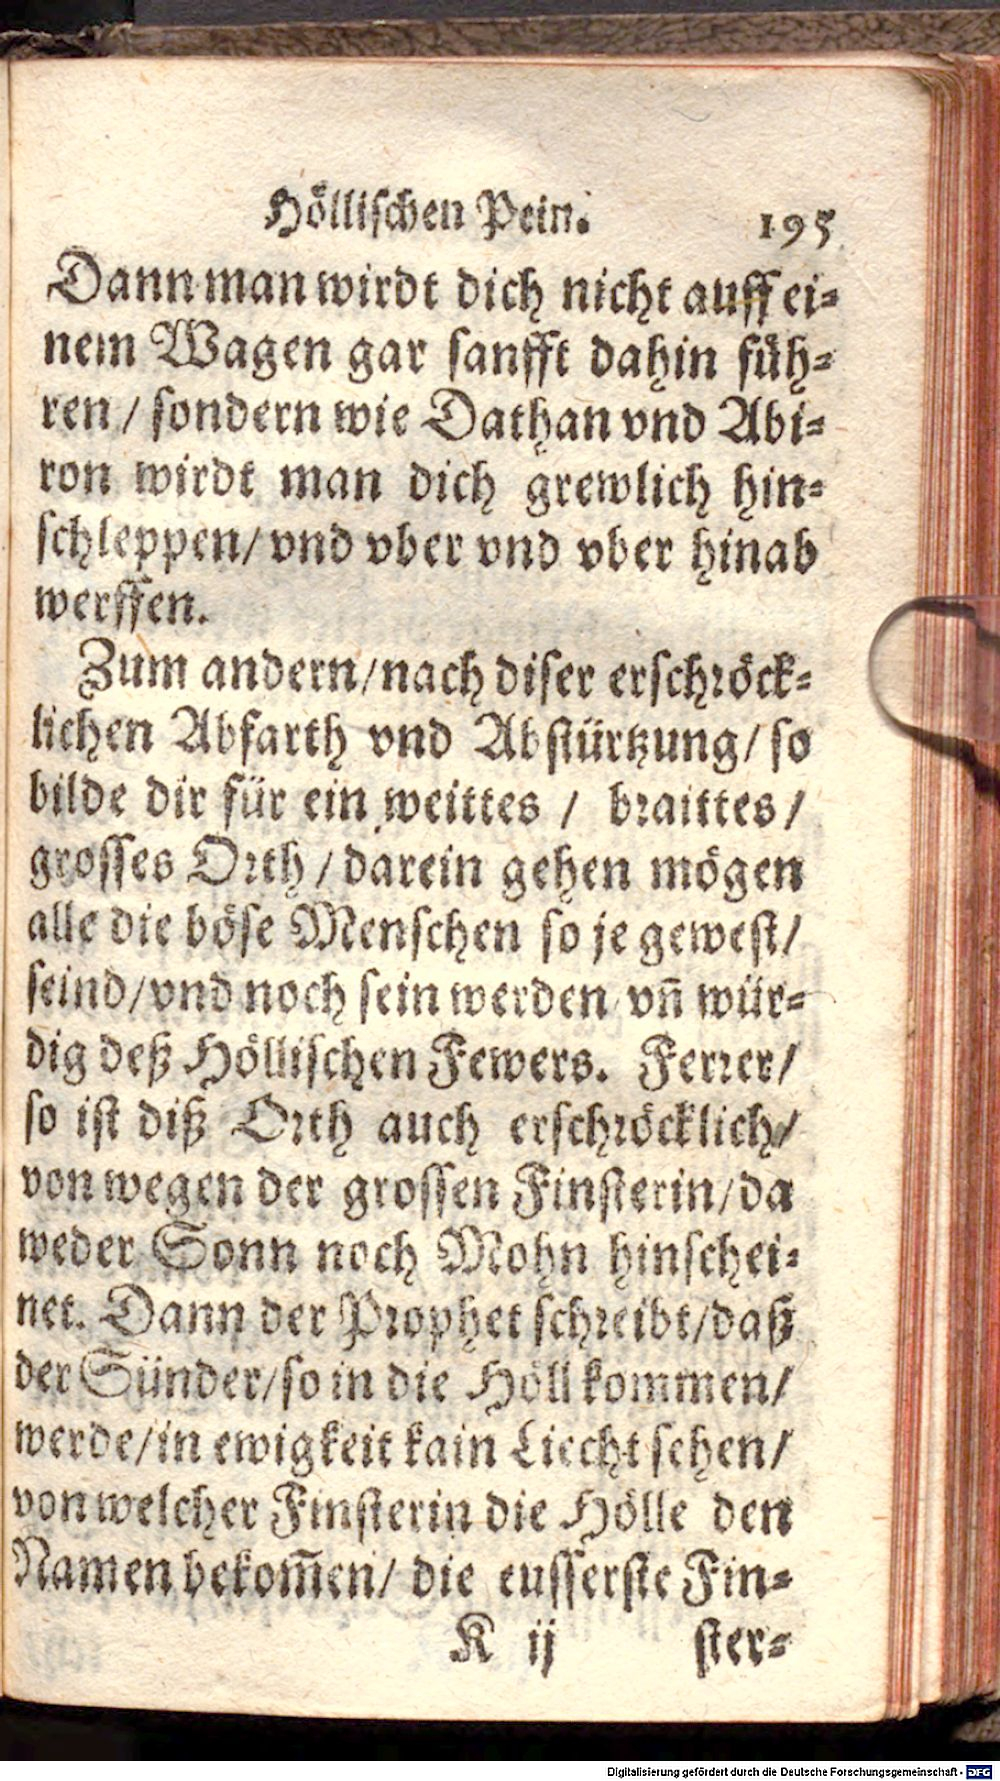 Höllischen Pein. 195
Dann man wirdt dich nicht auff ei-
nem Wagen gar sanfft dahin füh-
ren / sondern wie Dathan vnd Abi-
ron wirdt man dich grewlich hin-
schleppen / vnd vber vnd vber hinab
werffen.
Zum andern / nach diser erschröck-
lichen Abfarth vnd Abstürtzung / so
bilde dir für ein weittes / braittes /
grosses Orth / darein gehen mögen
alle die böse Menschen so je gewest /
seind / vnd noch sein werden vn̄ wür-
dig deß Höllischen Fewers. Ferrer /
so ist diß Orth auch erschröcklich /
von wegen der grossen Finsterin / da
weder Sonn noch Mohn hinschei-
net. Dann der Prophet schreibt / daß
der Sünder / so in die Höll kommen /
werde / in ewigkeit kain Liecht sehen /
von welcher Finsterin die Hölle den
Namen bekom̄en / die eusserste Fin-
K ij ster-
Digitalisierung gefördert durch die Deutsche Forschungsgemeinschaft - DFG